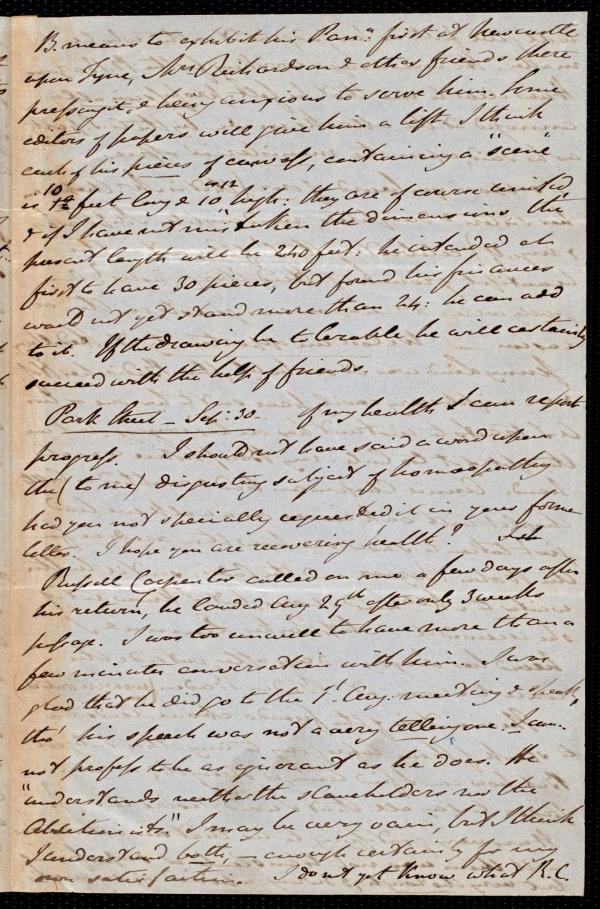 B. means to exhibit his Pan:ª first at Newcastle
upon Tyne, Mrs Richardson & other friends there
pressing it, & being anxious to serve him. Some
editors of papers will give him a lift. I think
each of his pieces of canvass, containing a "scene"
is 10 feet long & 10 or 12 high: they are of course united,
& if I have not mistaken the dimensions, the
present length will be 240 feet: he intended at
first to have 30 pieces, but found his finances
would not yet stand more than 24: he can add
to it. If the drawing be tolerable he will certainly
succeed with the help of friends.
Park Street – Sep: 30. Of my health I can report
progress. I should not have said a word upon
the (to me) disgusting subject of homœopathy
had you not specially requested it in your former
letter. I hope you are recovering health?
Russell Carpenter called on me a few days after
his return, he landed Aug 29th after only 3 weeks
passage. I was too unwell to have more than a
few minutes conversation with him. I was
glad that he did go to the 1st Aug. meeting & speak,
tho' his speech was not a very telling one. I can-
not profess to be as ignorant as he does. He
"understands neither the slaveholders nor the
Abolitionists." I may be very vain, but I think
I understand both, – enough certainly for my
own satisfaction. I don't yet know what R.C.